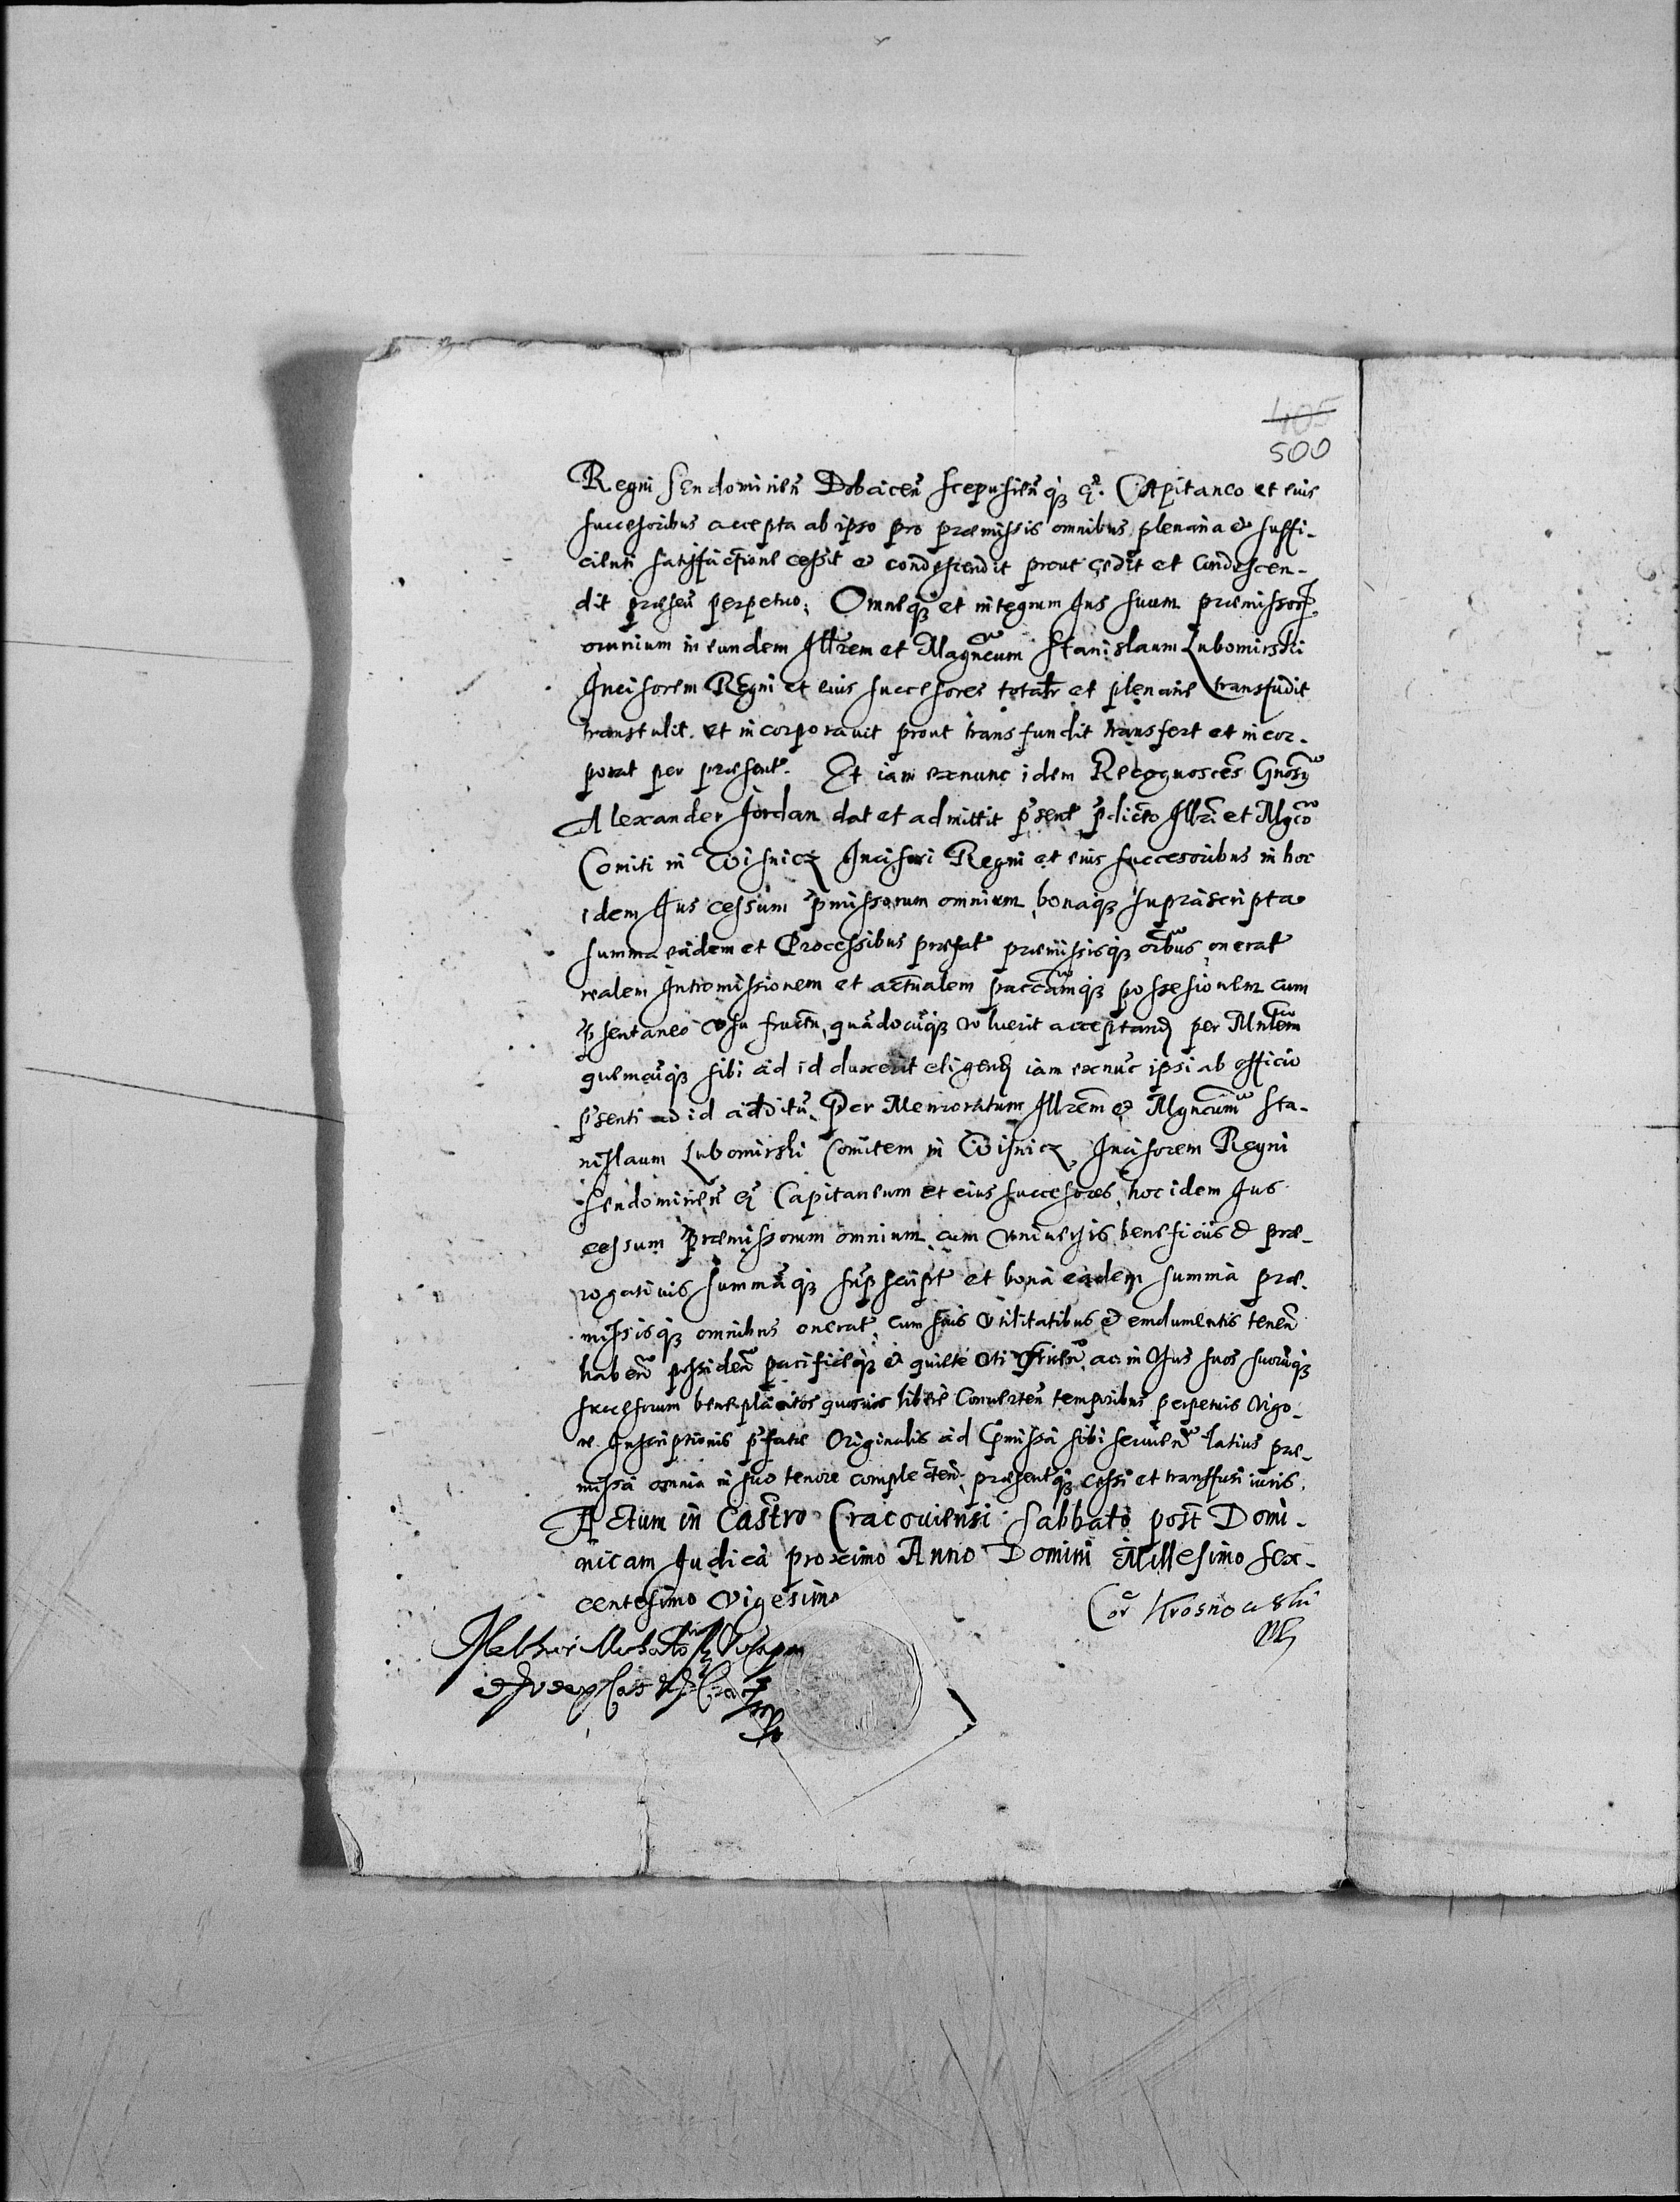 405
500
Regni Sendomirień Dobaceń Scepusień q3 &c. Capitaneo et eius
successoribus accepta ab ipso pro præmissis omnibus plenaria et suffi-
cienti satisfactione cessit et condescendit prout cedit et condescen-
dit præseń perpetuo. Omneq3 et integrum Jus suum præmissor
omnium in eundem Illrem et Magncum Stanislaum Lubomirski
Incisorem Regni et eius successores totalr et plenarie transfudit
transtulit et incorporauit prout transfundit transfert et incor-
porat per præsent. Et iam exnunc idem Recognoscens Gnosus
Alexander Jordan dat et admittit psent pdicto Illri et Mgco
Comiti in Wisnicz Incisori Regni et eius successoribus in hoc
idem Jus cessum pmissorum omnium, bonaq3 suprascripta
summa eadem et Processibus præfat præmissisq3 oibus onerat
realem Intromissionem et actualem paccamq3 possessionem cum
psentaneo vsu fructu, quādocuq3 voluerit acceptand per Mnlem
quemcuq3 sibi ad id duxerit eligend iam exnuc ipsi ab officio
psenti ad id additū. Per Memoratum Illrem et Mgncum Sta-
nislaum Lubomirski Comitem in Wisnicz, Incisorem Regni
Sendomirień &c Capitaneum et eius successores, hoc idem Jus
cessum præmissorum omnium cum vniuersis beneficiis et præ-
rogatiuis summaq3 supscript et bona eadem summa præ-
missisq3 omnibus onerat, cum suis vtilitatibus et emolumentis teneń
habeń possideń pacificeq3 et quiete vti frueń, ac in Vsus suos suorūq3
successorum beneplacitos quosuis libere Conuerteń temporibus perpetuis vigo-
re Inscriptionis pfatæ Originalis ad Pmissa sibi seruień latius præ-
missa omnia in suo tenore complecteń, præsentq3 cessi et transfusi iuris.
Actum in Castro Cracouiensi Sabbato post Domi-
nicam Judica proximo Anno Domini Millesimo sex-
centesimo vigesimo
Cor Krosnowski